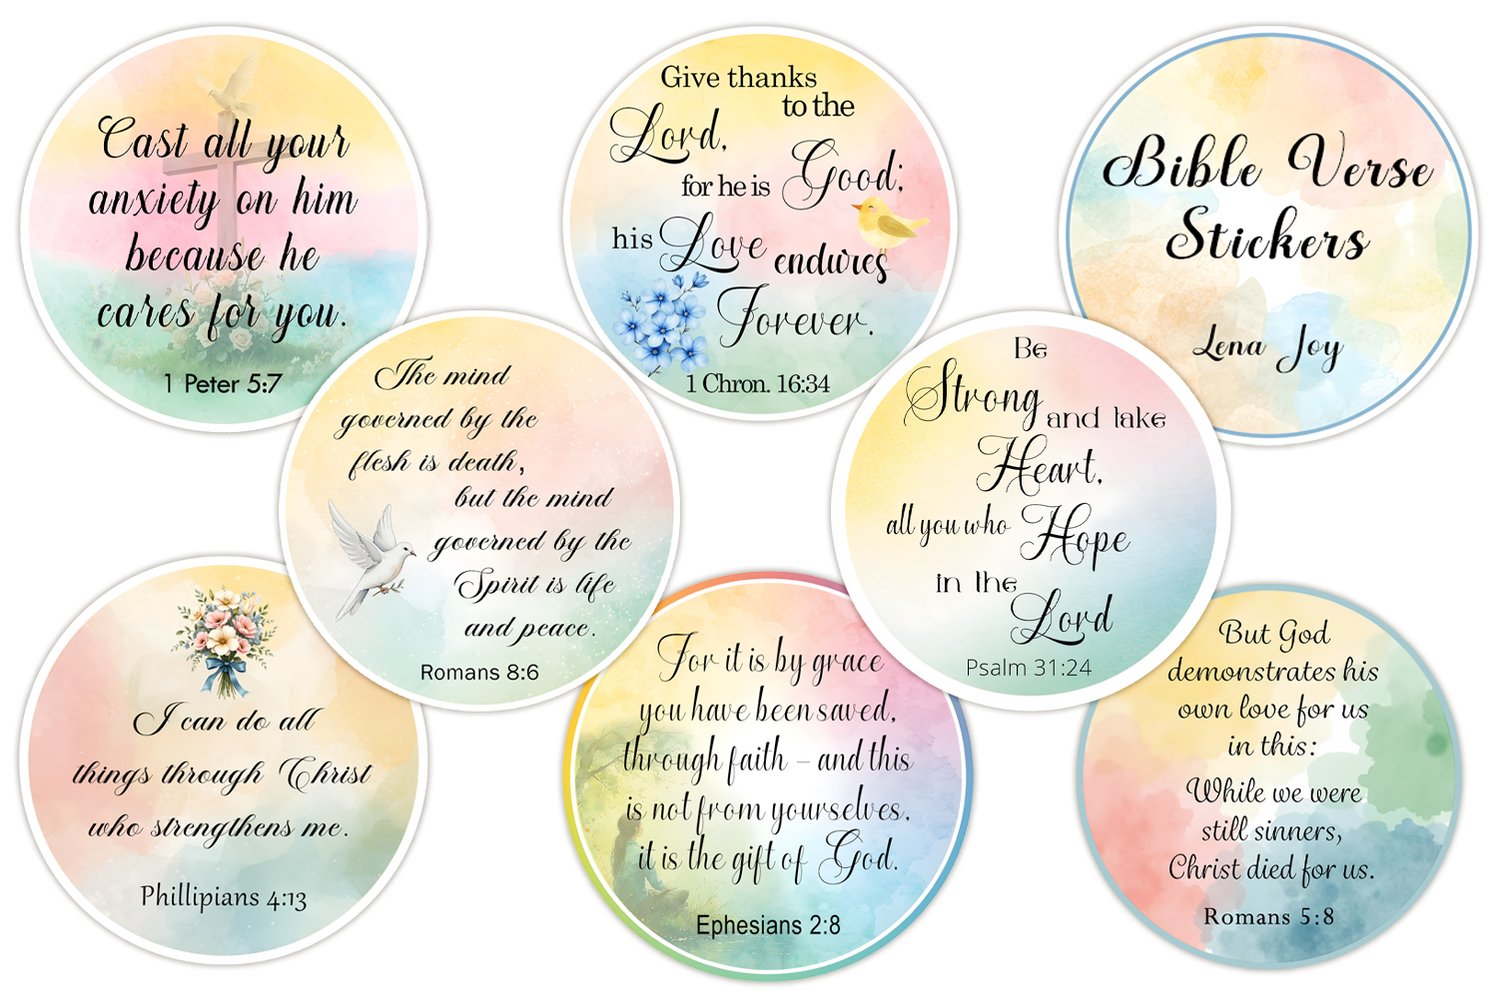 Cast all your
anxiety on him
because he
cares for you.
1 Peter 5:7
Give thanks
to the
Lord,
for he is Good;
his Love endures
Forever.
1 Chron. 16:34
Bible Verse
Stickers
Lena Joy
The mind
governed by the
flesh is death,
but the mind
governed by the
Spirit is life
and peace.
Romans 8:6
Be
Strong and take
Heart,
all you who Hope
in the
Lord
Psalm 31:24
I can do all
things through Christ
who strengthens me.
Phillipians 4:13
For it is by grace
you have been saved,
through faith – and this
is not from yourselves,
it is the gift of God.
Ephesians 2:8
But God
demonstrates his
own love for us
in this:
While we were
still sinners,
Christ died for us.
Romans 5:8